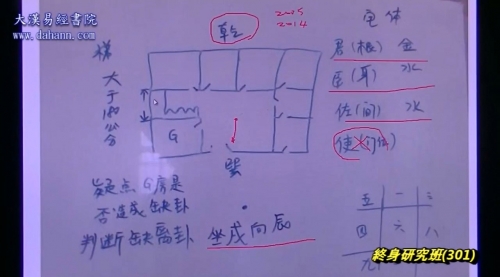 大漢易經書院
www.dahann.com
乾
2005
2014
梯
大
于
100
公
分
G
巽
疑点G房是
否造成缺卦
判断缺离卦 坐戌向辰
宅体
君(根) 金
臣(耳) 水
佐(间) 水
使(门
五 一 三
四 六 八
九
終身研究班(301)